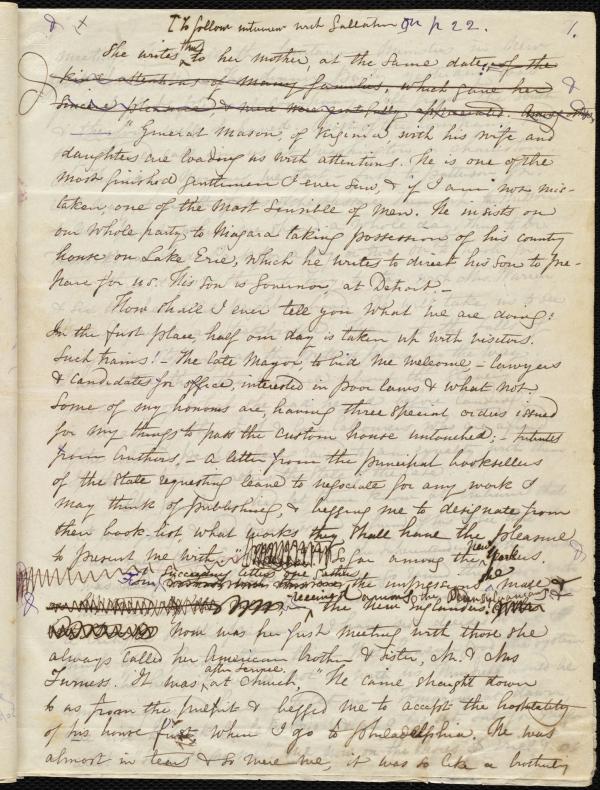 To follow interview with Gallatin on p 22. 1.
She writes thus to her mother, at the same date, of the
kind attentions of many families, which gave her &
sincere pleasure, & were
"General Mason, of Virginia with his wife and
daughters are loading us with attentions. He is one of the
most finished gentlemen I ever saw, & if I am not mis-
taken, one of the most sensible of men. He insists on
our whole party to Niagara taking possession of his country
house on Lake Erie, which he writes to direct his son to pre-
pare for us. This son is Governor at Detroit –
How shall I ever tell you what we are doing!
In the first place, half our day is taken up with visitors.
Such trains! – The late Mayor to bid me welcome, – lawyers
& candidates for office, interested in poor laws & what not
Some of my honours are, having three special orders issued
for my things to pass the custom house untouched; – tributes
from authors, – a letter from the principal booksellers
of the State requesting leave to negotiate for any work I
may think of publishing & begging me to designate from
their book-list, what works they shall have the pleasure
to present me with." So far among the New Yorkers.
From succeeding letters one gathers the impressions she made &
received among the Pennsylvanians &
the New Englanders.
Now was her first meeting with those she
always called her American brother & sister, Mr. & Mrs
Furness. It was, after service at church, "He came straight down
to us from the pulpit & begged me to accept the hospitality
of his house first when I go to Philadelphia. He was
almost in tears & so were we, it was so like a brotherly